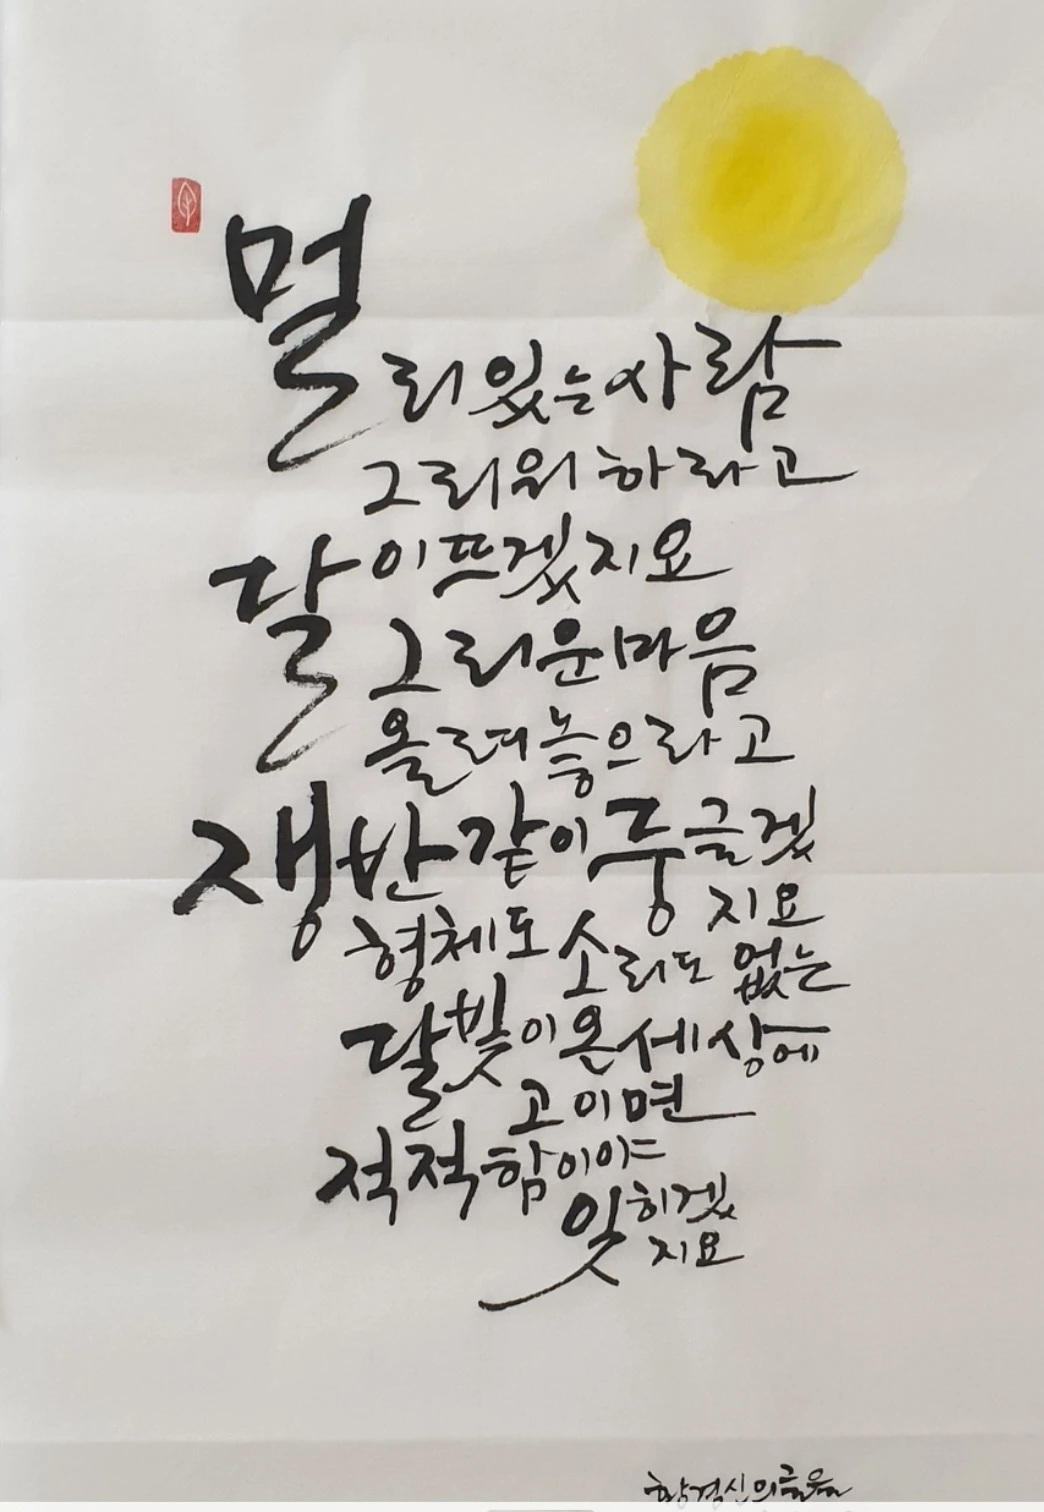 멀리 있는 사람
그리워 하라고
달이 뜨겠지요
그리운 마음
올려 놓으라고
쟁반같이 둥글겠
지요
형체도 소리도 없는
달빛이 온 세상에
고이면
적적함이야
잊히겠
지요
황경신의 글을